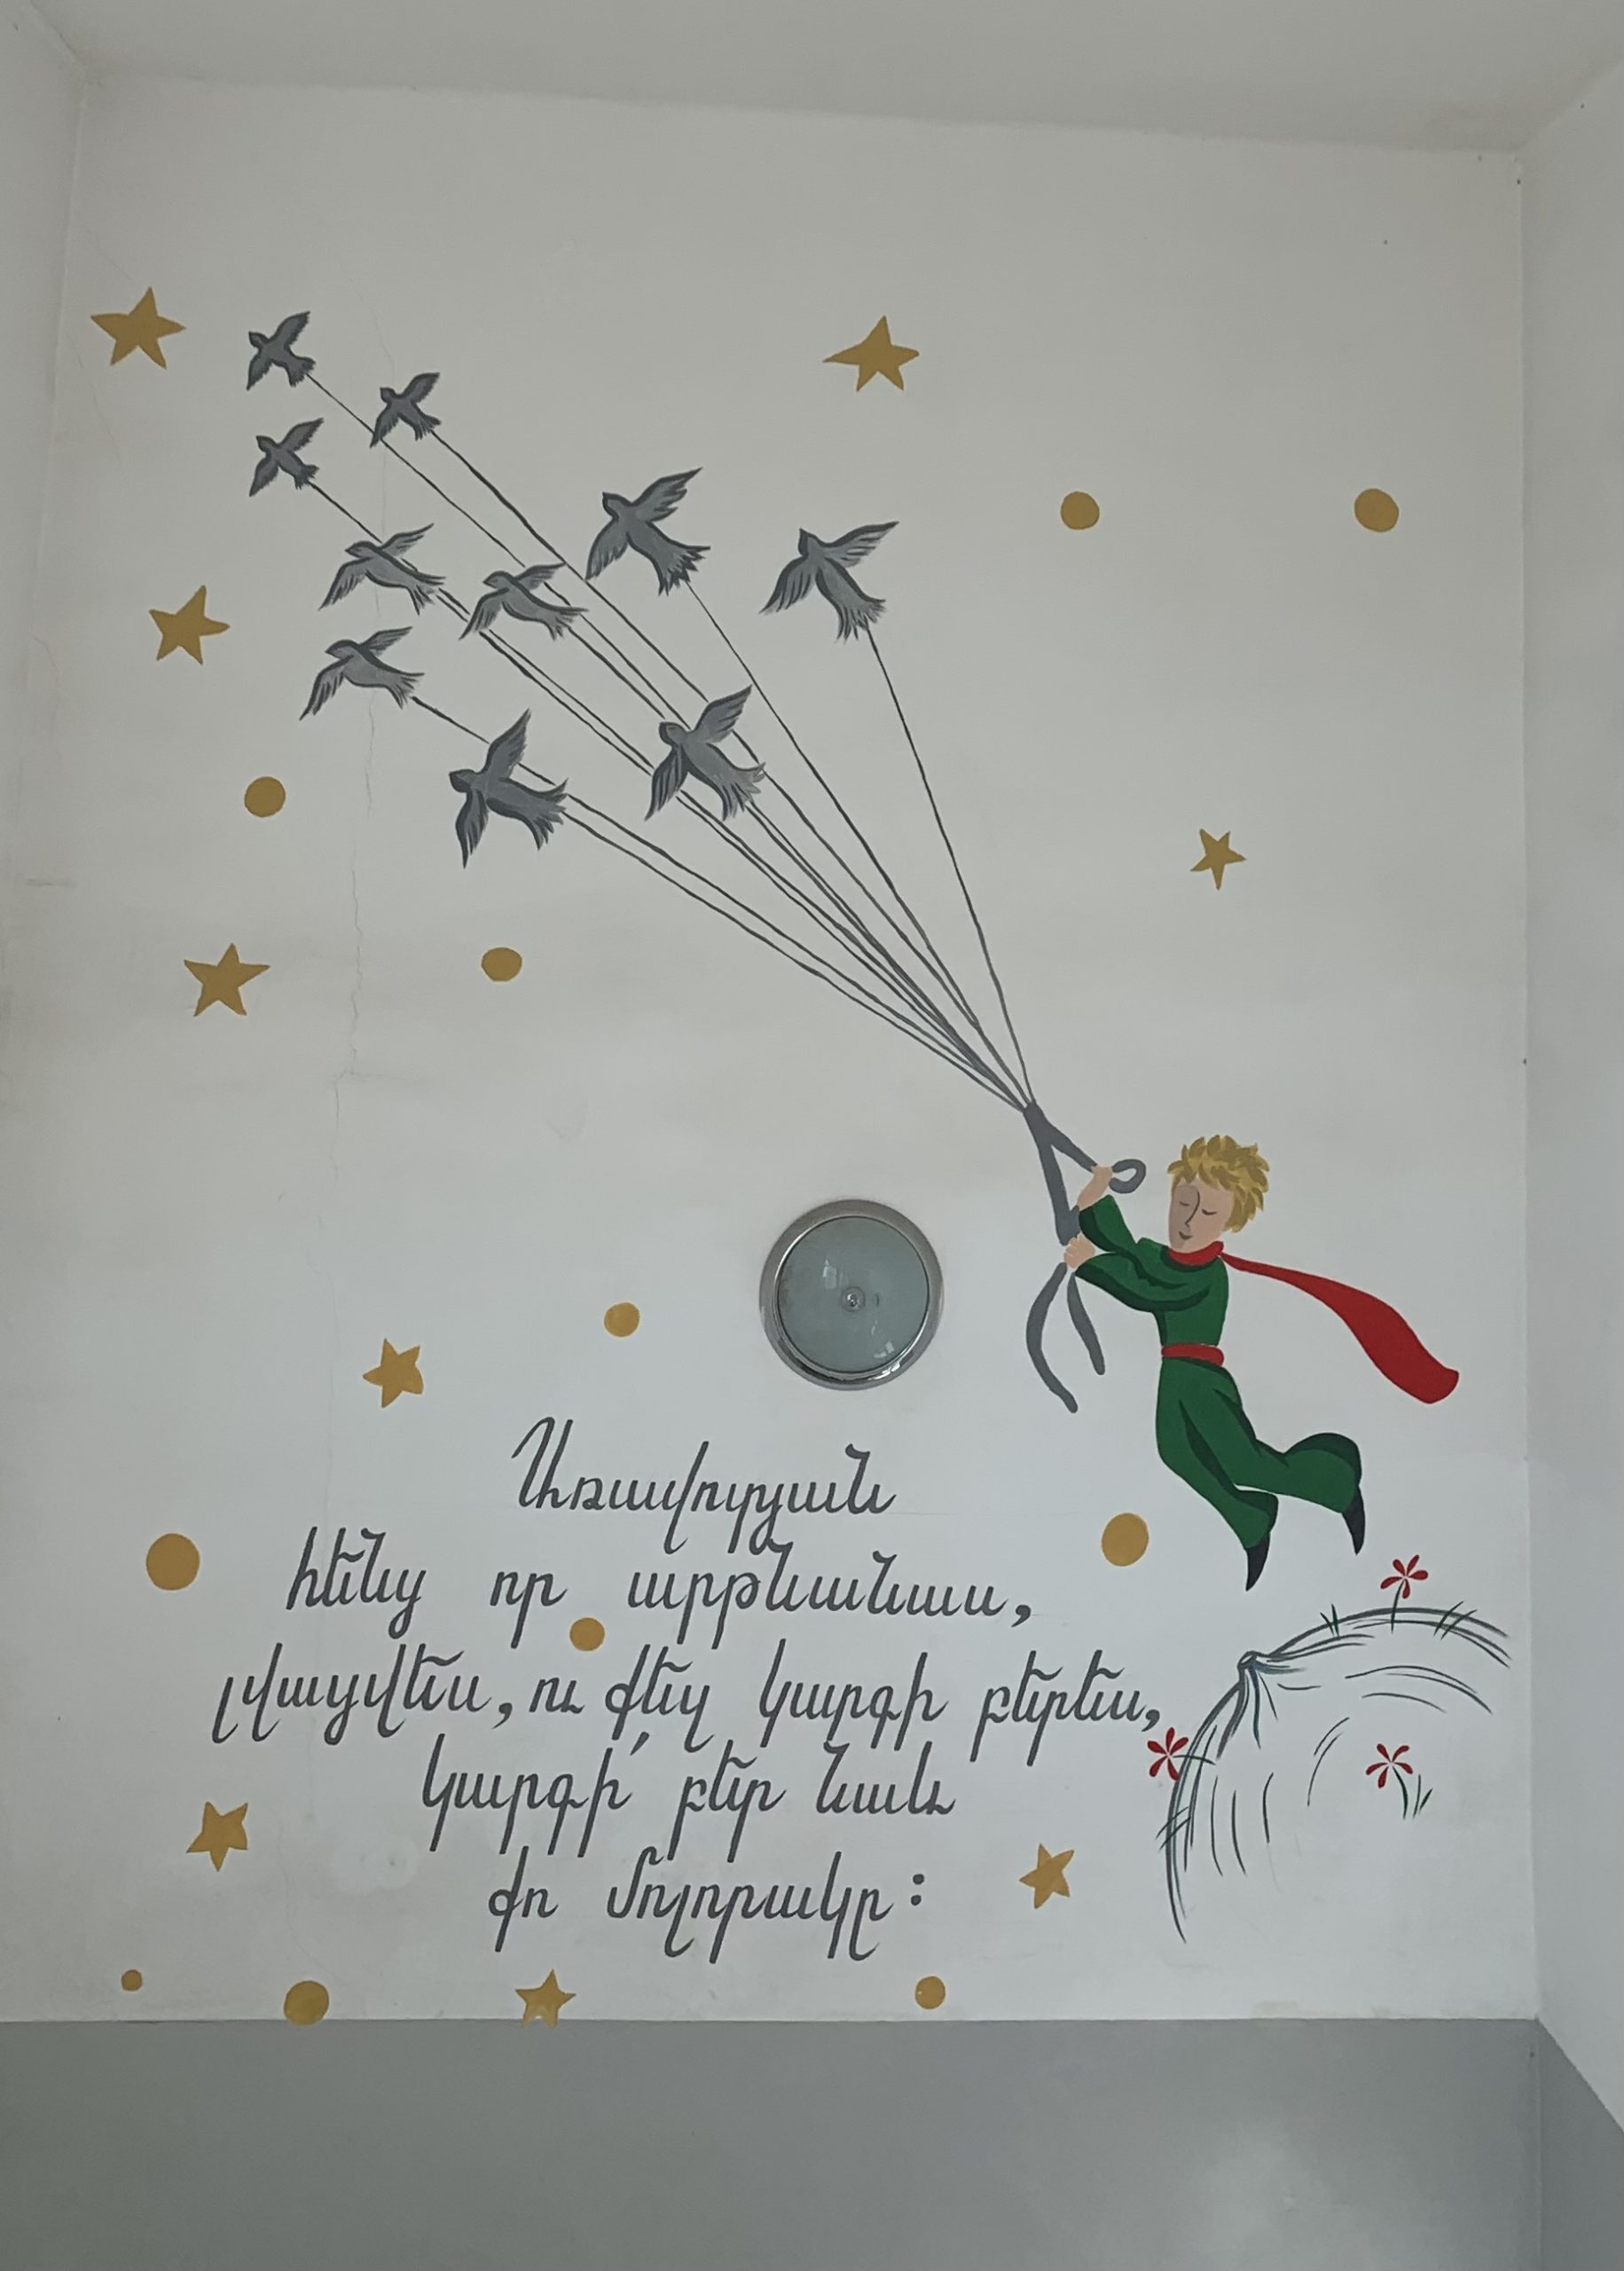 Առավոտյան
հենց որ արթնանաս,
լվացվես, ու քեզ կարգի բերես,
կարգի՛ բեր նաև
քո մոլորակը: